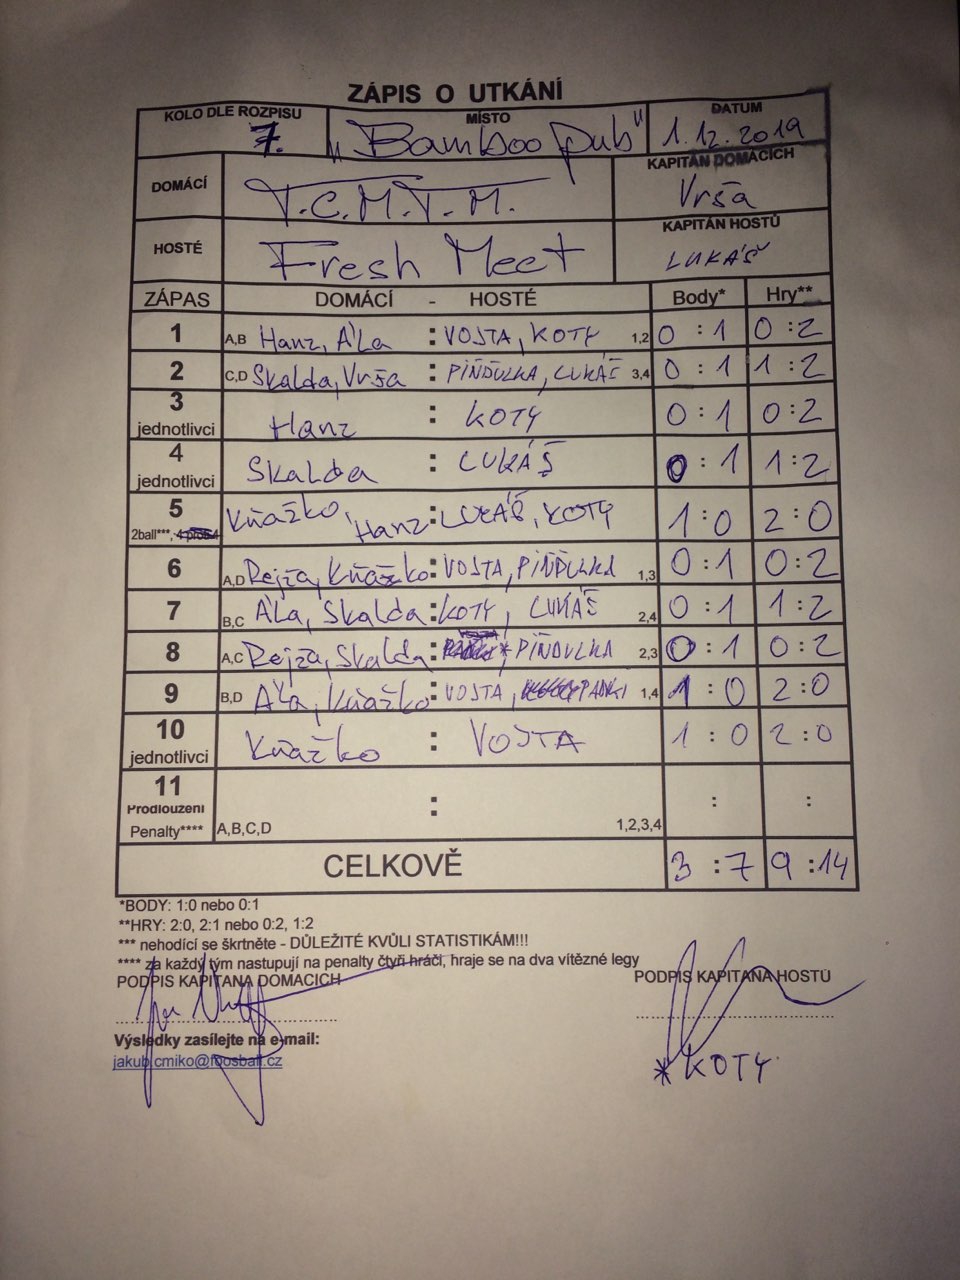 ZÁPIS O UTKÁNÍ
KOLO DLE ROZPISU MÍSTO DATUM
7. "Bamboo pub" 1.12.2019
DOMÁCÍ T.C.M.T.M. KAPITÁN DOMÁCÍCH
Vrša
HOSTÉ Fresh Meet KAPITÁN HOSTŮ
LUKÁŠ
ZÁPAS DOMÁCÍ - HOSTÉ Body* Hry**
1 A,B Hanz, Ála : VOJTA, KOTY 1,2 0 : 1 0 : 2
2 C,D Skalda, Vrša : PIŇĎULKA, LUKÁŠ 3,4 0 : 1 1 : 2
3 jednotlivci Hanz : KOTY 0 : 1 0 : 2
4 jednotlivci Skalda : LUKÁŠ 0 : 1 1 : 2
5 Kňažko, Hanz : LUKÁŠ, KOTY 1 : 0 2 : 0
2ball***,
6 A,D Rejža, Kňažko : VOJTA, PIŇĎULKA 1,3 0 : 1 0 : 2
7 B,C Ála, Skalda : KOTY, LUKÁŠ 2,4 0 : 1 1 : 2
8 A,C Rejža, Skalda : *, PIŇĎULKA 2,3 0 : 1 0 : 2
9 B,D Ála, Kňažko : VOJTA, PANKI 1,4 1 : 0 2 : 0
10 jednotlivci Kňažko : VOJTA 1 : 0 2 : 0
11 : : :
Prodloužení
Penalty**** A,B,C,D 1,2,3,4
CELKOVĚ 3 : 7 9 : 14
*BODY: 1:0 nebo 0:1
**HRY: 2:0, 2:1 nebo 0:2, 1:2
*** nehodící se škrtněte - DŮLEŽITÉ KVŮLI STATISTIKÁM!!!
**** za každý tým nastupují na penalty čtyři hráči, hraje se na dva vítězné legy
PODPIS KAPITÁNA DOMÁCÍCH PODPIS KAPITÁNA HOSTŮ
Výsledky zasílejte na e-mail:
jakub.cmiko@foosball.cz
* KOTY